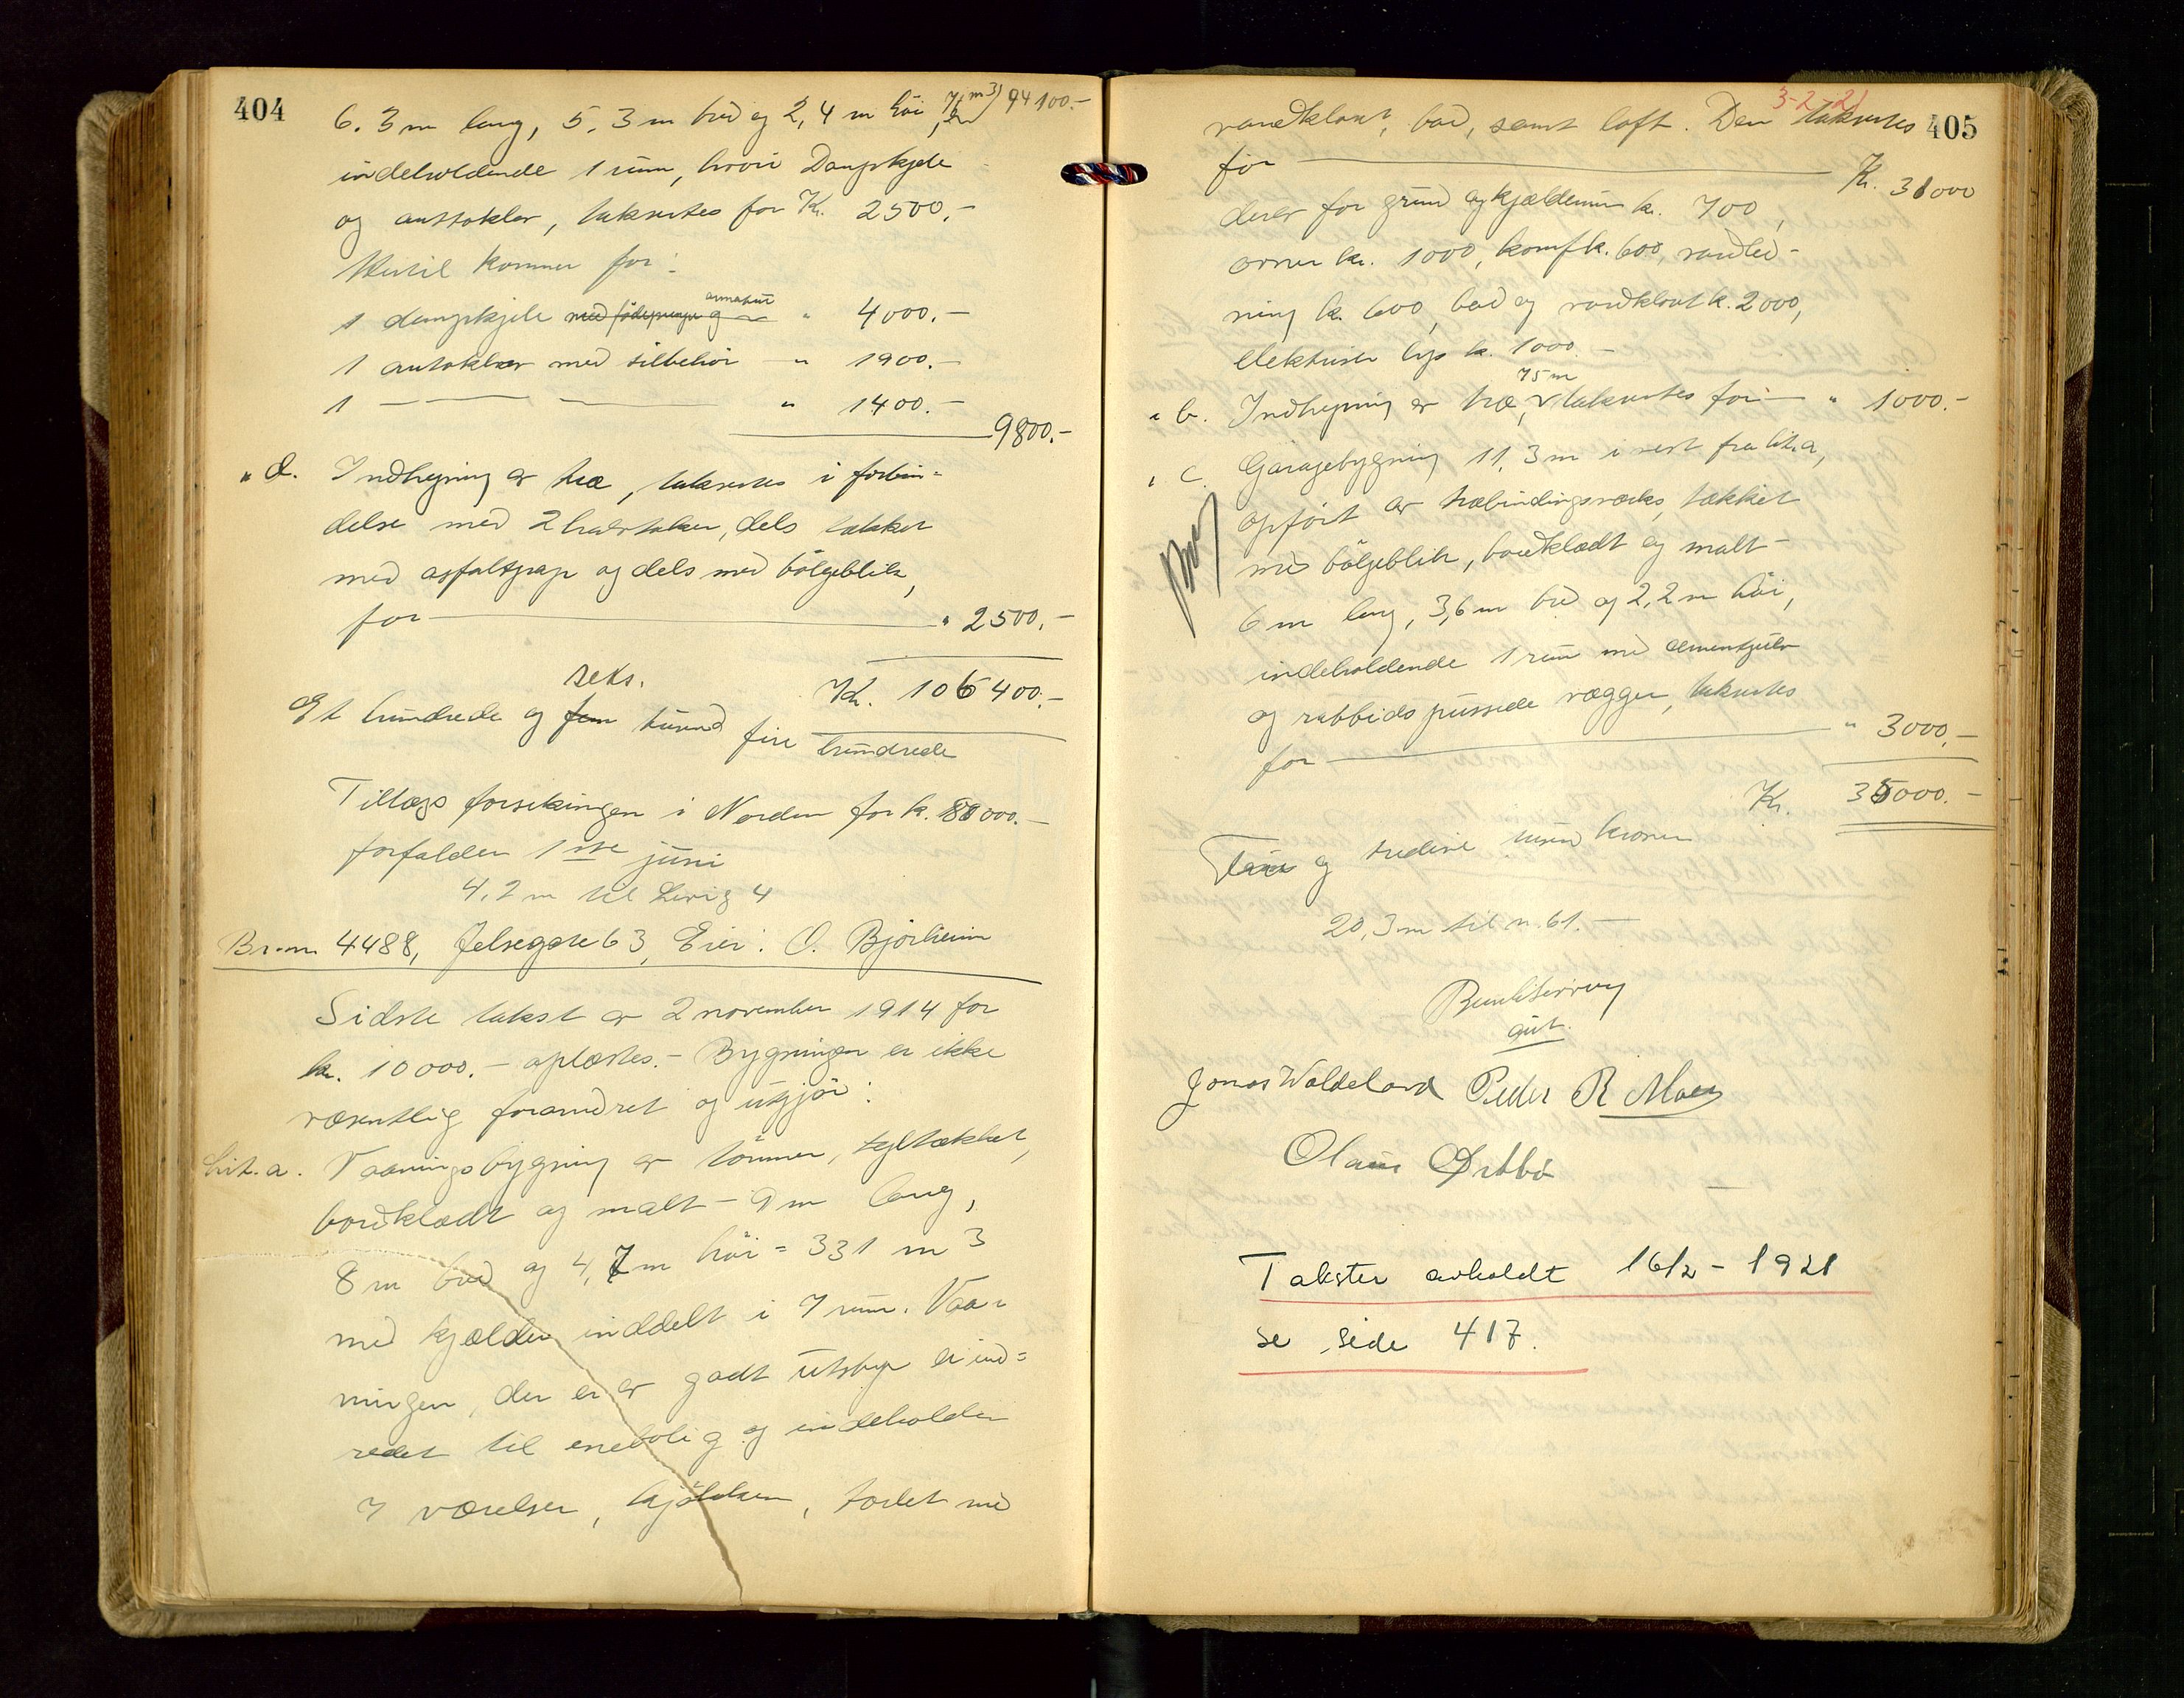 404
6.3 m lang, 5.3 m bred og 2,4 m høi, 94 100.-
indeholdende 1 rum, hvori Dampkjele
og autoklav, takseres for Kr. 2500.-
Hertil kommer for:
1 dampkjele med fødepumpe og armatur " 4000.-
1 autoklav med tilbehør - " 1900.-
1 — — — " 1400.-
9800.-
" d. Indhegning av træ, taksertes i forbin=
delse med 2 halvtaker, dels tækket
med asfaltpap og dels med bølgeblik,
for " 2500.-
Kr. 106 400.-
seks.
Et hundrede og fem tusend fire hundrede
Tillægsforsikringen i Norden for k. 000.-
forfalder 1ste juni
4,2 m til 4
Br. nr. 4488, Jelsegate 63, Eier: O. Bjørheim
Sidste takst av 2 november 1914 for
kr. 10000.- oplæstes.- Bygningen er ikke
væsentlig forandret og utgjør:
Lit. a. Vaaningsbygning av tømmer, tegltækket,
bordklædt og malt - 9 m lang,
8 m bred og 4,7 m høi = 331 m3
med kjelder inddelt i 7 rum. Vaa-
ningen, der er av godt utstyr er ind=
redet til enebolig og indeholder
7 værelser, kjøkken, toilet med
3-2-21
405
vandkloset, bad, samt loft. Den taksertes
for Kr. 31000
derav for grund og kjeldermur kr. 700,
ovner kr. 1000, komf kr. 600, vandled-
ning kr. 600, bad og vandklosat k. 2000,
elektrisk lys kr. 1000.-
75 m
" b. Indhegning av træ, taksertes for " 1000.-
" c. Garagebygning 11,3 m i vest fra lit. a,
opført av træbindingsverks, tækket
med bølgeblik, bordklædt og malt-
6 m lang, 3,6 m bred og 2,2 m høi,
indeholdende 1 rum med cementgulv
og rabbids pussede vægger, taksertes
for " 3000.-
Kr. 35000.-
og tredive tusen kroner
20,3 m til n. 61.-
Jonas Waldeland Peder R Moen
Olaus Ørtbø
Takster avholdt 16/2 - 1921
se side 417.